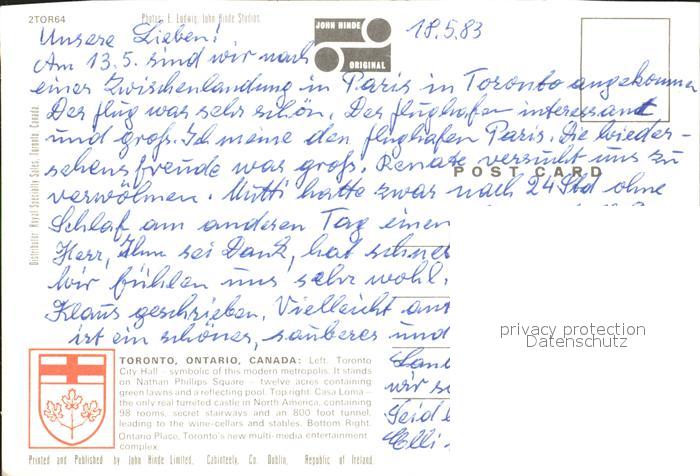 2TOR64
Photos: E. Ludwig, John Hinde Studios.
JOHN HINDE
ORIGINAL
18.5.83
Unsere Lieben!
Am 13.5. sind wir nach
einer Zwischenlandung in Paris in Toronto angekommen
Der flug war sehr schön. Der flughafen interessant
und groß. Ich meine den flughafen Paris. Die Wieder-
sehensfreude war groß. Renate versucht uns zu
POST CARD
verwöhnen. Mutti hatte zwar nach 24 Std ohne
Schlaf am anderen Tag einen
Herr, Ihm sei Dank, hat schnel
Wir fühlen uns sehr wohl.
Klaus geschrieben. Vielleicht ant
ist ein schönes, sauberes und
Lan
wir se
Seid
Elli.
Distributor: Royal Specialty Sales, Toronto Canada.
privacy protection
Datenschutz
TORONTO, ONTARIO, CANADA: Left. Toronto
City Hall - symbolic of this modern metropolis. It stands
on Nathan Phillips Square - twelve acres containing
green lawns and a reflecting pool. Top right. Casa Loma -
the only real turreted castle in North America, containing
98 rooms, secret stairways and an 800 foot tunnel,
leading to the wine-cellars and stables. Bottom Right.
Ontario Place, Toronto's new multi-media entertainment
complex.
Printed and Published by John Hinde Limited, Cabinteely, Co. Dublin, Republic of Ireland.